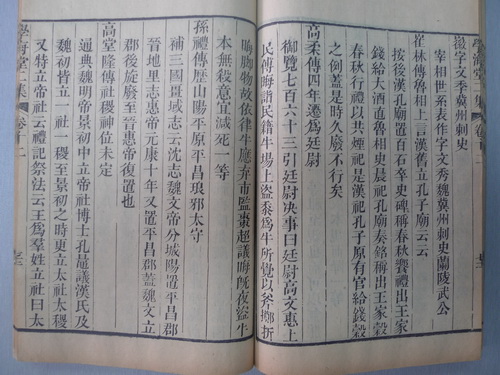 學海堂二集
徽字文季冀州刺史
宰相世系表作字文秀魏冀州刺史蘭陵武公
崔林傳魯相上言漢舊立孔子廟云云
按後漢孔廟置百石卒史碑稱春秋饗禮出王家
錢給大酒直魯相史晨祀孔廟奏銘稱出王家穀
春秋行禮以共煙祀是漢祀孔子原有官給錢穀
之例蓋是時久廢不行矣
高柔傳四年遷爲廷尉
御覽七百六十三引廷尉决事曰廷尉高文惠上
民傅晦詣民籍牛場上盜黍爲牛所覺以斧擲折
晦脚物故依律牛應弃市監棗超議晦旣夜盜牛
本無殺意宜減死一等
孫禮傳歷山陽平原平昌琅邪太守
補三國畺域志云沈志魏文帝分城陽置平昌郡
晉地里志惠帝元康十年又置平昌郡蓋魏文立
郡後旋廢至晉惠帝復置也
高堂隆傳社稷神位未定
通典魏明帝景初中立帝社博士孔晁議漢氏及
魏初皆立一社一稷至景初之時更立太社太稷
又特立帝社云禮記祭法云王爲羣姓立社曰太
學海堂二集 卷